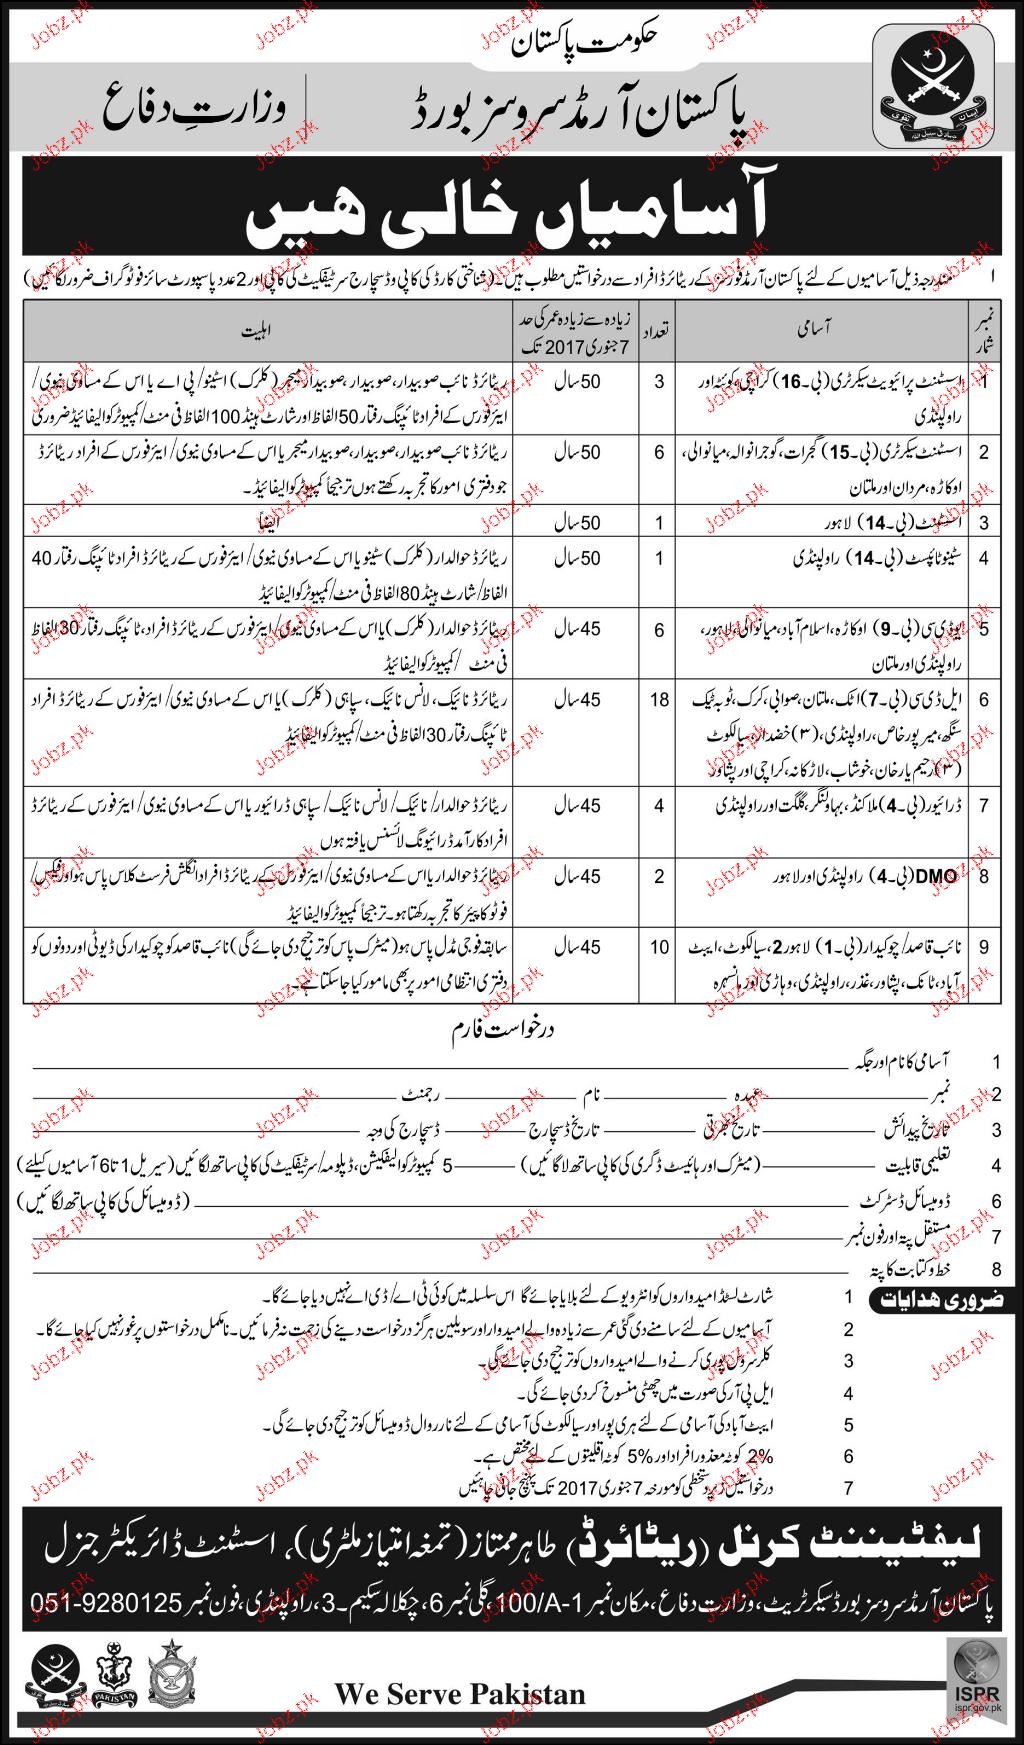 حکومت پاکستان
پاکستان آرمڈ سروسز بورڈ
وزارتِ دفاع
آسامیاں خالی ھیں
ا مندرجہ ذیل آسامیوں کے لئے پاکستان آرمڈ فورسز کے ریٹائرڈ افراد سے درخواستیں مطلوب ہیں۔ (شناختی کارڈ کی کاپی و ڈسچارج سرٹیفکیٹ کی کاپی اور 2 عدد پاسپورٹ سائز فوٹوگراف ضرور لگائیں)
نمبر شمار | آسامی | تعداد | زیادہ سے زیادہ عمر کی حد 7 جنوری 2017 تک | اہلیت
1 اسسٹنٹ پرائیویٹ سیکرٹری (بی۔16) کراچی، کوئٹہ اور
راولپنڈی
3
50 سال
ریٹائرڈ نائب صوبیدار، صوبیدار، صوبیدار میجر (کلرک) اسٹینو/ پی اے یا اس کے مساوی نیوی/
ایئر فورس کے افراد ٹائپنگ رفتار 50 الفاظ اور شارٹ ہینڈ 100 الفاظ فی منٹ/ کمپیوٹر کوالیفائیڈ ضروری
2 اسسٹنٹ سیکرٹری (بی۔15) گجرات، گوجرانوالہ، میانوالی،
اوکاڑہ، مردان اور ملتان
6
50 سال
ریٹائرڈ نائب صوبیدار، صوبیدار، صوبیدار میجر یا اس کے مساوی نیوی/ ایئر فورس کے افراد ریٹائرڈ
جو دفتری امور کا تجربہ رکھتے ہوں ترجیحاً کمپیوٹر کوالیفائیڈ۔
3 اسسٹنٹ (بی۔14) لاہور
1
50 سال
ایضاً
4 سٹینو ٹائپسٹ (بی۔14) راولپنڈی
1
50 سال
ریٹائرڈ حوالدار (کلرک) سٹینو یا اس کے مساوی نیوی/ ایئر فورس کے ریٹائرڈ افراد ٹائپنگ رفتار 40
الفاظ/ شارٹ ہینڈ 80 الفاظ فی منٹ/ کمپیوٹر کوالیفائیڈ
5 یو ڈی سی (بی۔9) اوکاڑہ، اسلام آباد، میانوالی، لاہور،
راولپنڈی اور ملتان
6
45 سال
ریٹائرڈ حوالدار (کلرک) یا اس کے مساوی نیوی/ ایئر فورس کے ریٹائرڈ افراد، ٹائپنگ رفتار 30 الفاظ
فی منٹ / کمپیوٹر کوالیفائیڈ
6 ایل ڈی سی (بی۔7) اٹک، ملتان، صوابی، کرک، ٹوبہ ٹیک
سنگھ، میرپور خاص، راولپنڈی، (۳) خضدار، سیالکوٹ
(۳) رحیم یار خان، خوشاب، لاڑکانہ، کراچی اور پشاور
18
45 سال
ریٹائرڈ نائیک، لانس نائیک، سپاہی (کلرک) یا اس کے مساوی نیوی/ ایئر فورس کے ریٹائرڈ افراد
ٹائپنگ رفتار 30 الفاظ فی منٹ/ کمپیوٹر کوالیفائیڈ
7 ڈرائیور (بی۔4) ملاکنڈ، بہاولنگر، گلگت اور راولپنڈی
4
45 سال
ریٹائرڈ حوالدار/ نائیک/ لانس نائیک/ سپاہی ڈرائیور یا اس کے مساوی نیوی/ ایئر فورس کے ریٹائرڈ
افراد کارآمد ڈرائیونگ لائسنس یافتہ ہوں
8 DMO (بی۔4) راولپنڈی اور لاہور
2
45 سال
ریٹائرڈ حوالدار یا اس کے مساوی نیوی/ ایئر فورس کے ریٹائرڈ افراد انگلش فرسٹ کلاس پاس ہو اور فیکس/
فوٹو کاپیئر کا تجربہ رکھتا ہو۔ ترجیحاً کمپیوٹر کوالیفائیڈ
9 نائب قاصد/ چوکیدار (بی۔1) لاہور 2، سیالکوٹ، ایبٹ
آباد، ٹانک، پشاور، غذر، راولپنڈی، وہاڑی اور مانسہرہ
10
45 سال
سابقہ فوجی مڈل پاس ہو (میٹرک پاس کو ترجیح دی جائے گی) نائب قاصد کو چوکیدار کی ڈیوٹی اور دونوں کو
دفتری انتظامی امور پر بھی مامور کیا جا سکتا ہے۔
درخواست فارم
1 آسامی کا نام اور جگہ
2 نمبر عہدہ نام رجمنٹ
3 تاریخ پیدائش تاریخ بھرتی تاریخ ڈسچارج ڈسچارج کی وجہ
4 تعلیمی قابلیت (میٹرک اور ہائیسٹ ڈگری کی کاپی ساتھ لاگائیں) 5 کمپیوٹر کوالیفکیشن، ڈپلومہ/ سرٹیفکیٹ کی کاپی ساتھ لگائیں (سیریل 1 تا 6 آسامیوں کیلئے)
6 ڈومیسائل ڈسٹرکٹ (ڈومیسائل کی کاپی ساتھ لگائیں)
7 مستقل پتہ اور فون نمبر
8 خط و کتابت کا پتہ
ضروری ھدایات
1 شارٹ لسٹڈ امیدواروں کو انٹرویو کے لئے بلایا جائے گا اس سلسلہ میں کوئی ٹی اے/ ڈی اے نہیں دیا جائے گا۔
2 آسامیوں کے لئے سامنے دی گئی عمر سے زیادہ والے امیدوار اور سویلین ہرگز درخواست دینے کی زحمت نہ فرمائیں۔ نامکمل درخواستوں پر غور نہیں کیا جائے گا۔
3 کلر سروس پوری کرنے والے امیدواروں کو ترجیح دی جائے گی۔
4 ایل پی آر کی صورت میں چھٹی منسوخ کر دی جائے گی۔
5 ایبٹ آباد کی آسامی کے لئے ہری پور اور سیالکوٹ کی آسامی کے لئے نارروال ڈومیسائل کو ترجیح دی جائے گی۔
6 2% کوٹہ معذور افراد اور 5% کوٹہ اقلیتوں کے لئے مختص ہے۔
7 درخواستیں زیر دستخطی کو مورخہ 7 جنوری 2017 تک پہنچ جانی چاہئیں
لیفٹیننٹ کرنل (ریٹائرڈ) طاہر ممتاز (تمغہ امتیاز ملٹری)، اسسٹنٹ ڈائریکٹر جنرل
پاکستان آرمڈ سروسز بورڈ سیکرٹریٹ، وزارت دفاع، مکان نمبر 100/A-1، گلی نمبر 6، چکلالہ سکیم۔3، راولپنڈی، فون نمبر 051-9280125
PAKISTAN
We Serve Pakistan
ISPR
ispr.gov.pk
Jobz.pk